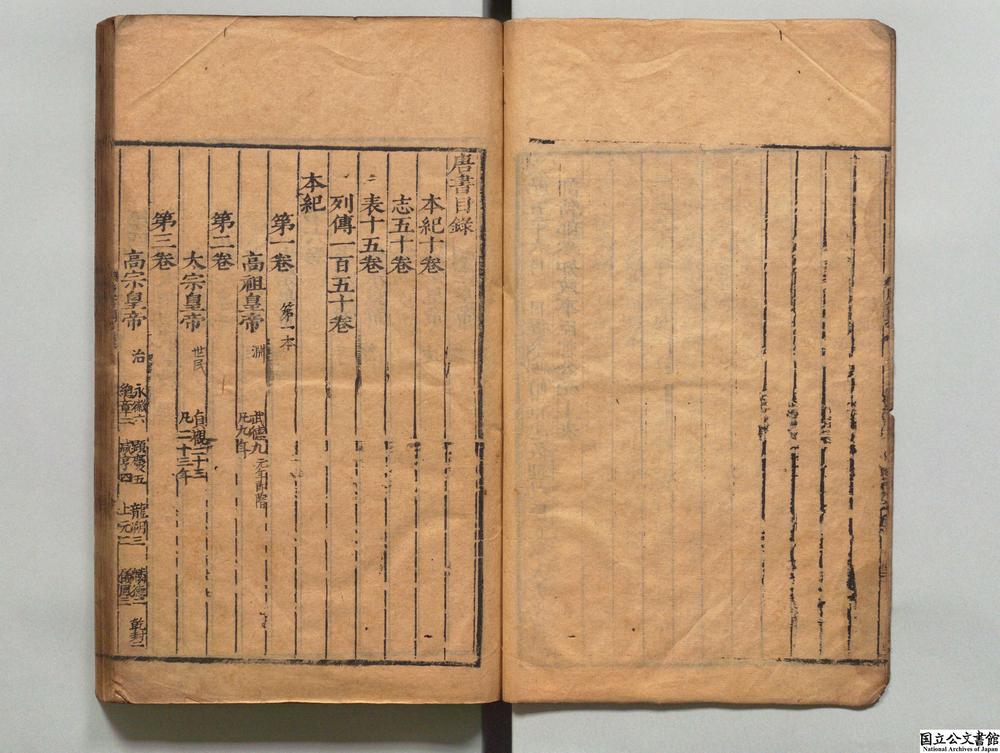 唐書目錄
本紀十卷
志五十卷
表十五卷
列傳一百五十卷
本紀
第一卷 第一本
高祖皇帝 淵 武德九 凡九年 元年即隋
第二卷
太宗皇帝 世民 貞觀二十三 凡二十三年
第三卷
高宗皇帝 治 永徽六 顯慶五 龍朔三 麟德二 乾封二
總章二 咸亨四 上元二 儀鳳三
国立公文書館
National Archives of Japan